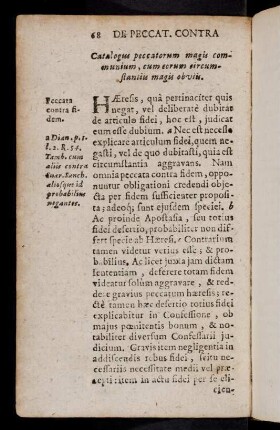 68 DE PECCAT. CONTRA
Catalogus peccatorum magis com-
munium, cum eorum circum-
stantiis magis obviis.
Peccata
contra fi-
dem.
a Dian. p. 1.
t. 2. R. 54.
Tamb. cum
aliis contra
Suar. Sanch.
aliosque id
probabiliùs
negantes.
HÆresis, quâ pertinaciter quis
negat, vel deliberatè dubitat
de articulo fidei, hoc est, judicat
eum esse dubium. a Nec est necesse
explicare articulum fidei, quem ne-
gasti, vel de quo dubitasti, quia est
circumstantia aggravans. Nam
omnia peccata contra fidem, oppo-
nuntur obligationi credendi obje-
cta per fidem sufficienter proposi-
ta; adeoq; sunt ejusdem speciei. b
Ac proinde Apostasia, seu totius
fidei desertio, probabiliter non dif-
fert specie ab Hæresi. c Contrarium
tamen videtur verius esse; & pro-
babilius. Ac licet juxta jam dictam
sententiam, deserere totam fidem
videatur solùm aggravate, & red-
dere gravius peccatum hæresis; re-
ctè tamen hæc desertio totius fidei
explicabitur in Confessione, ob
majus pœnitentis bonum, & no-
tabiliter diversum Confessarii ju-
dicium. Gravis item negligentia in
addiscendis rebus fidei, scitu ne-
cessariis necessitate medii vel præ-
cepti: item in actu fidei per se eli-
cien-